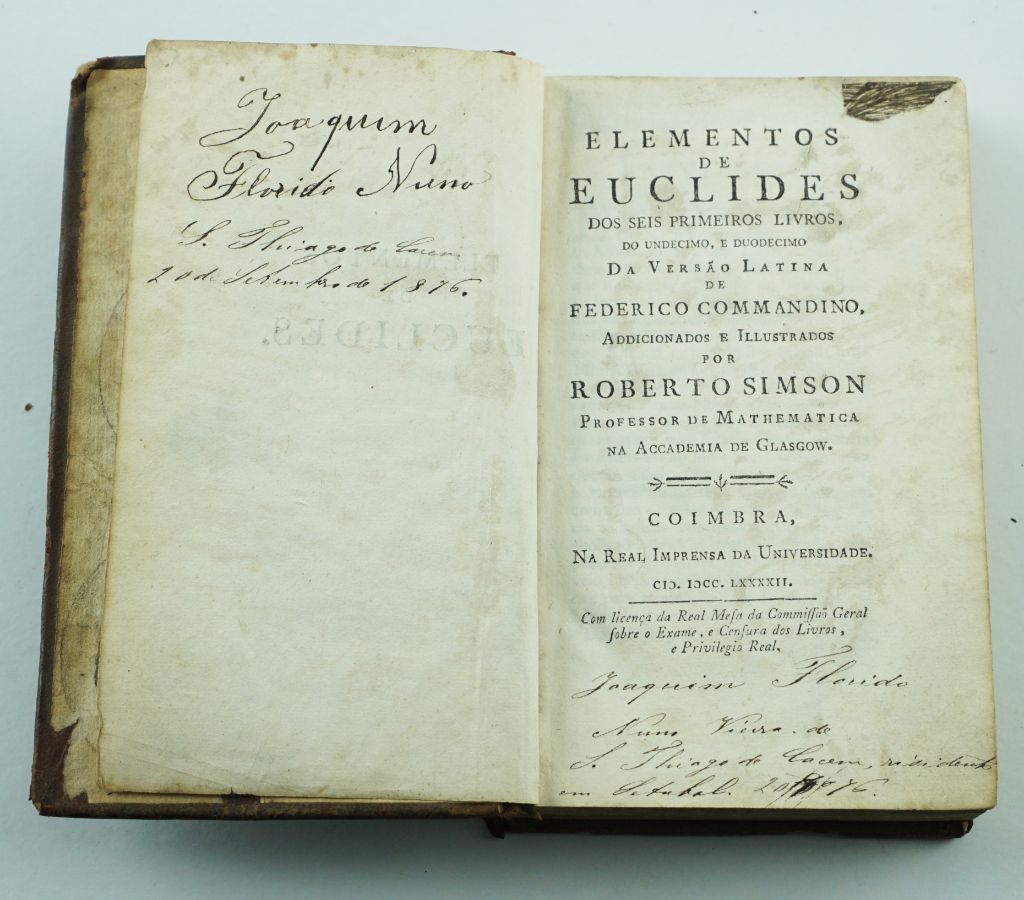 Joaquim
Florido Nuno
S. Thiago de Cacem
20 de Setembro de 1876.
ELEMENTOS
DE
EUCLIDES
DOS SEIS PRIMEIROS LIVROS,
DO UNDECIMO, E DUODECIMO
DA VERSÃO LATINA
DE
FEDERICO COMMANDINO,
ADDICIONADOS E ILLUSTRADOS
POR
ROBERTO SIMSON
PROFESSOR DE MATHEMATICA
NA ACCADEMIA DE GLASGOW.
COIMBRA,
NA REAL IMPRENSA DA UNIVERSIDADE.
CIↃ. IↃCC. LXXXXII.
Com licença da Real Meſa da Commiſſaõ Geral
ſobre o Exame, e Cenſura dos Livros,
e Privilegio Real.
Joaquim Florido
Nuno Vieira de
S. Thiago de Cacem, residente
em Setubal. 20 76.